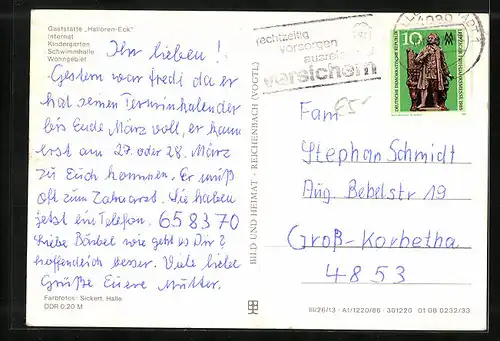 Gaststätte „Halloren-Eck"
Internat
Kindergarten
Schwimmhalle
Wohngebiet
Ihr lieben!
Gestern war Fredi da er
hat seinen Terminkalender
bis Ende März voll, er kann
erst am 27. oder 28. März
zu Euch kommen. Er muß
oft zum Zahnarzt. Sie haben
jetzt ein Telefon. 658370
Liebe Bärbel wie geht es Dir?
hoffendlich besser. Viele liebe
Grüße Euere Mutter.
Farbfotos: Sickert, Halle
DDR 0,20 M
BILD UND HEIMAT · REICHENBACH (VOGTL)
rechtzeitig
vorsorgen
ausreichend
versichern
10
DEUTSCHE DEMOKRATISCHE REPUBLIK
LEIPZIGER FRÜHJAHRSMESSE 1985
Fam
Stephan Schmidt
Aug. Bebelstr 19
Groß-Korbetha
4853
III/26/13 · A1/1220/86 · 301220 01 08 0232/33